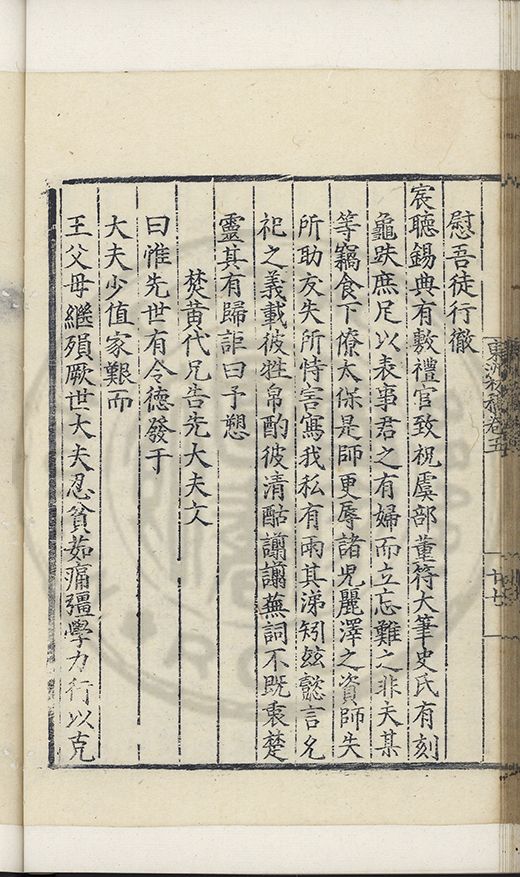 慰吾徒行徹
宸聽錫典有數禮官致祝虞部董符大筆史氏有刻
龜趺庶足以表事君之有婦而立忘難之非夫某
等竊食下僚太保是師更辱諸兒麗澤之資師失
所助友失所恃害寫我私有兩其涕矧茲懿言允
祀之義載彼牲帛酌彼清酤讓讓蕪詞不既衷楚
靈其有歸詎曰予愬
焚黃代兄告先大夫文
曰惟先世有令德發于
大夫少值家艱而
王父母繼殞厥世大夫忍貧茹痛彊學力行以克
東洲初稿卷五
十七